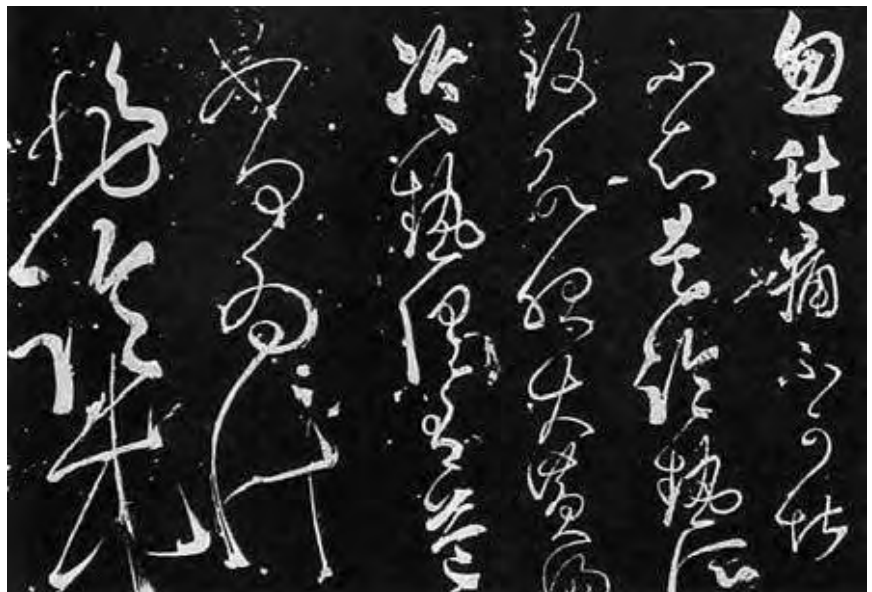 忽肚痛不可堪
不知是冷熱所
致欲服大黃湯
冷熱俱有益
如何為計
非冷